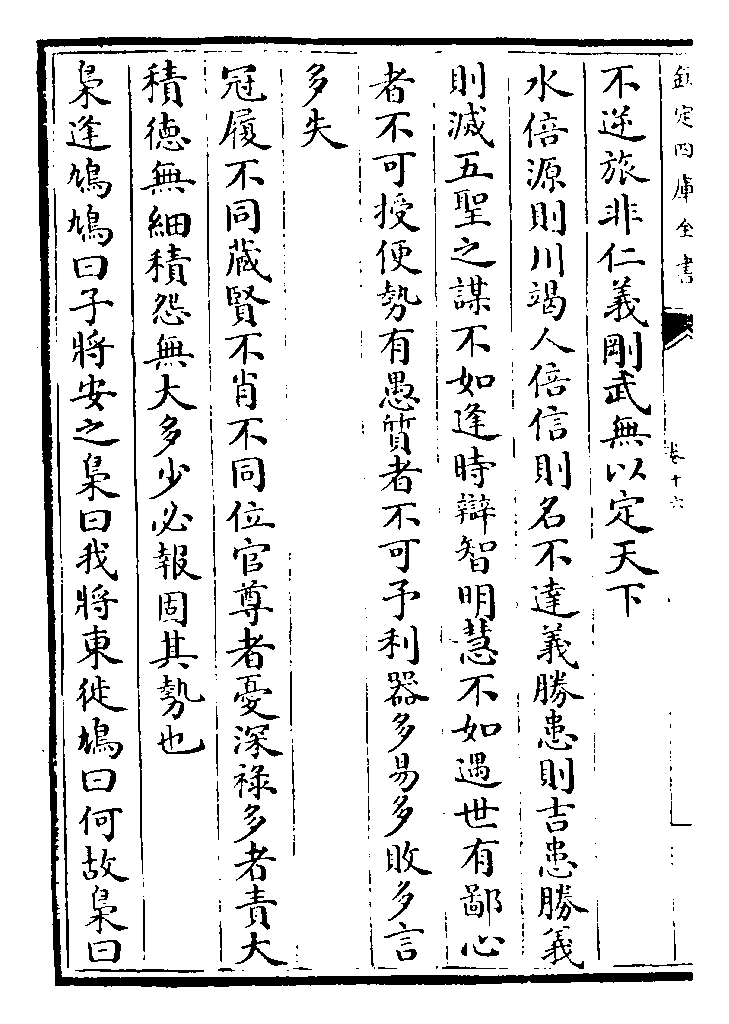 欽定四庫全書
卷十六
不逆旅非仁義剛武無以定天下
水倍源則川竭人倍信則名不達義勝患則吉患勝義
則滅五聖之謀不如逢時辯智明慧不如遇世有鄙心
者不可授便勢有愚質者不可予利器多易多敗多言
多失
冠履不同藏賢不肖不同位官尊者憂深祿多者責大
積徳無細積怨無大多少必報固其勢也
梟逢鳩鳩曰子將安之梟曰我將東徙鳩曰何故梟曰